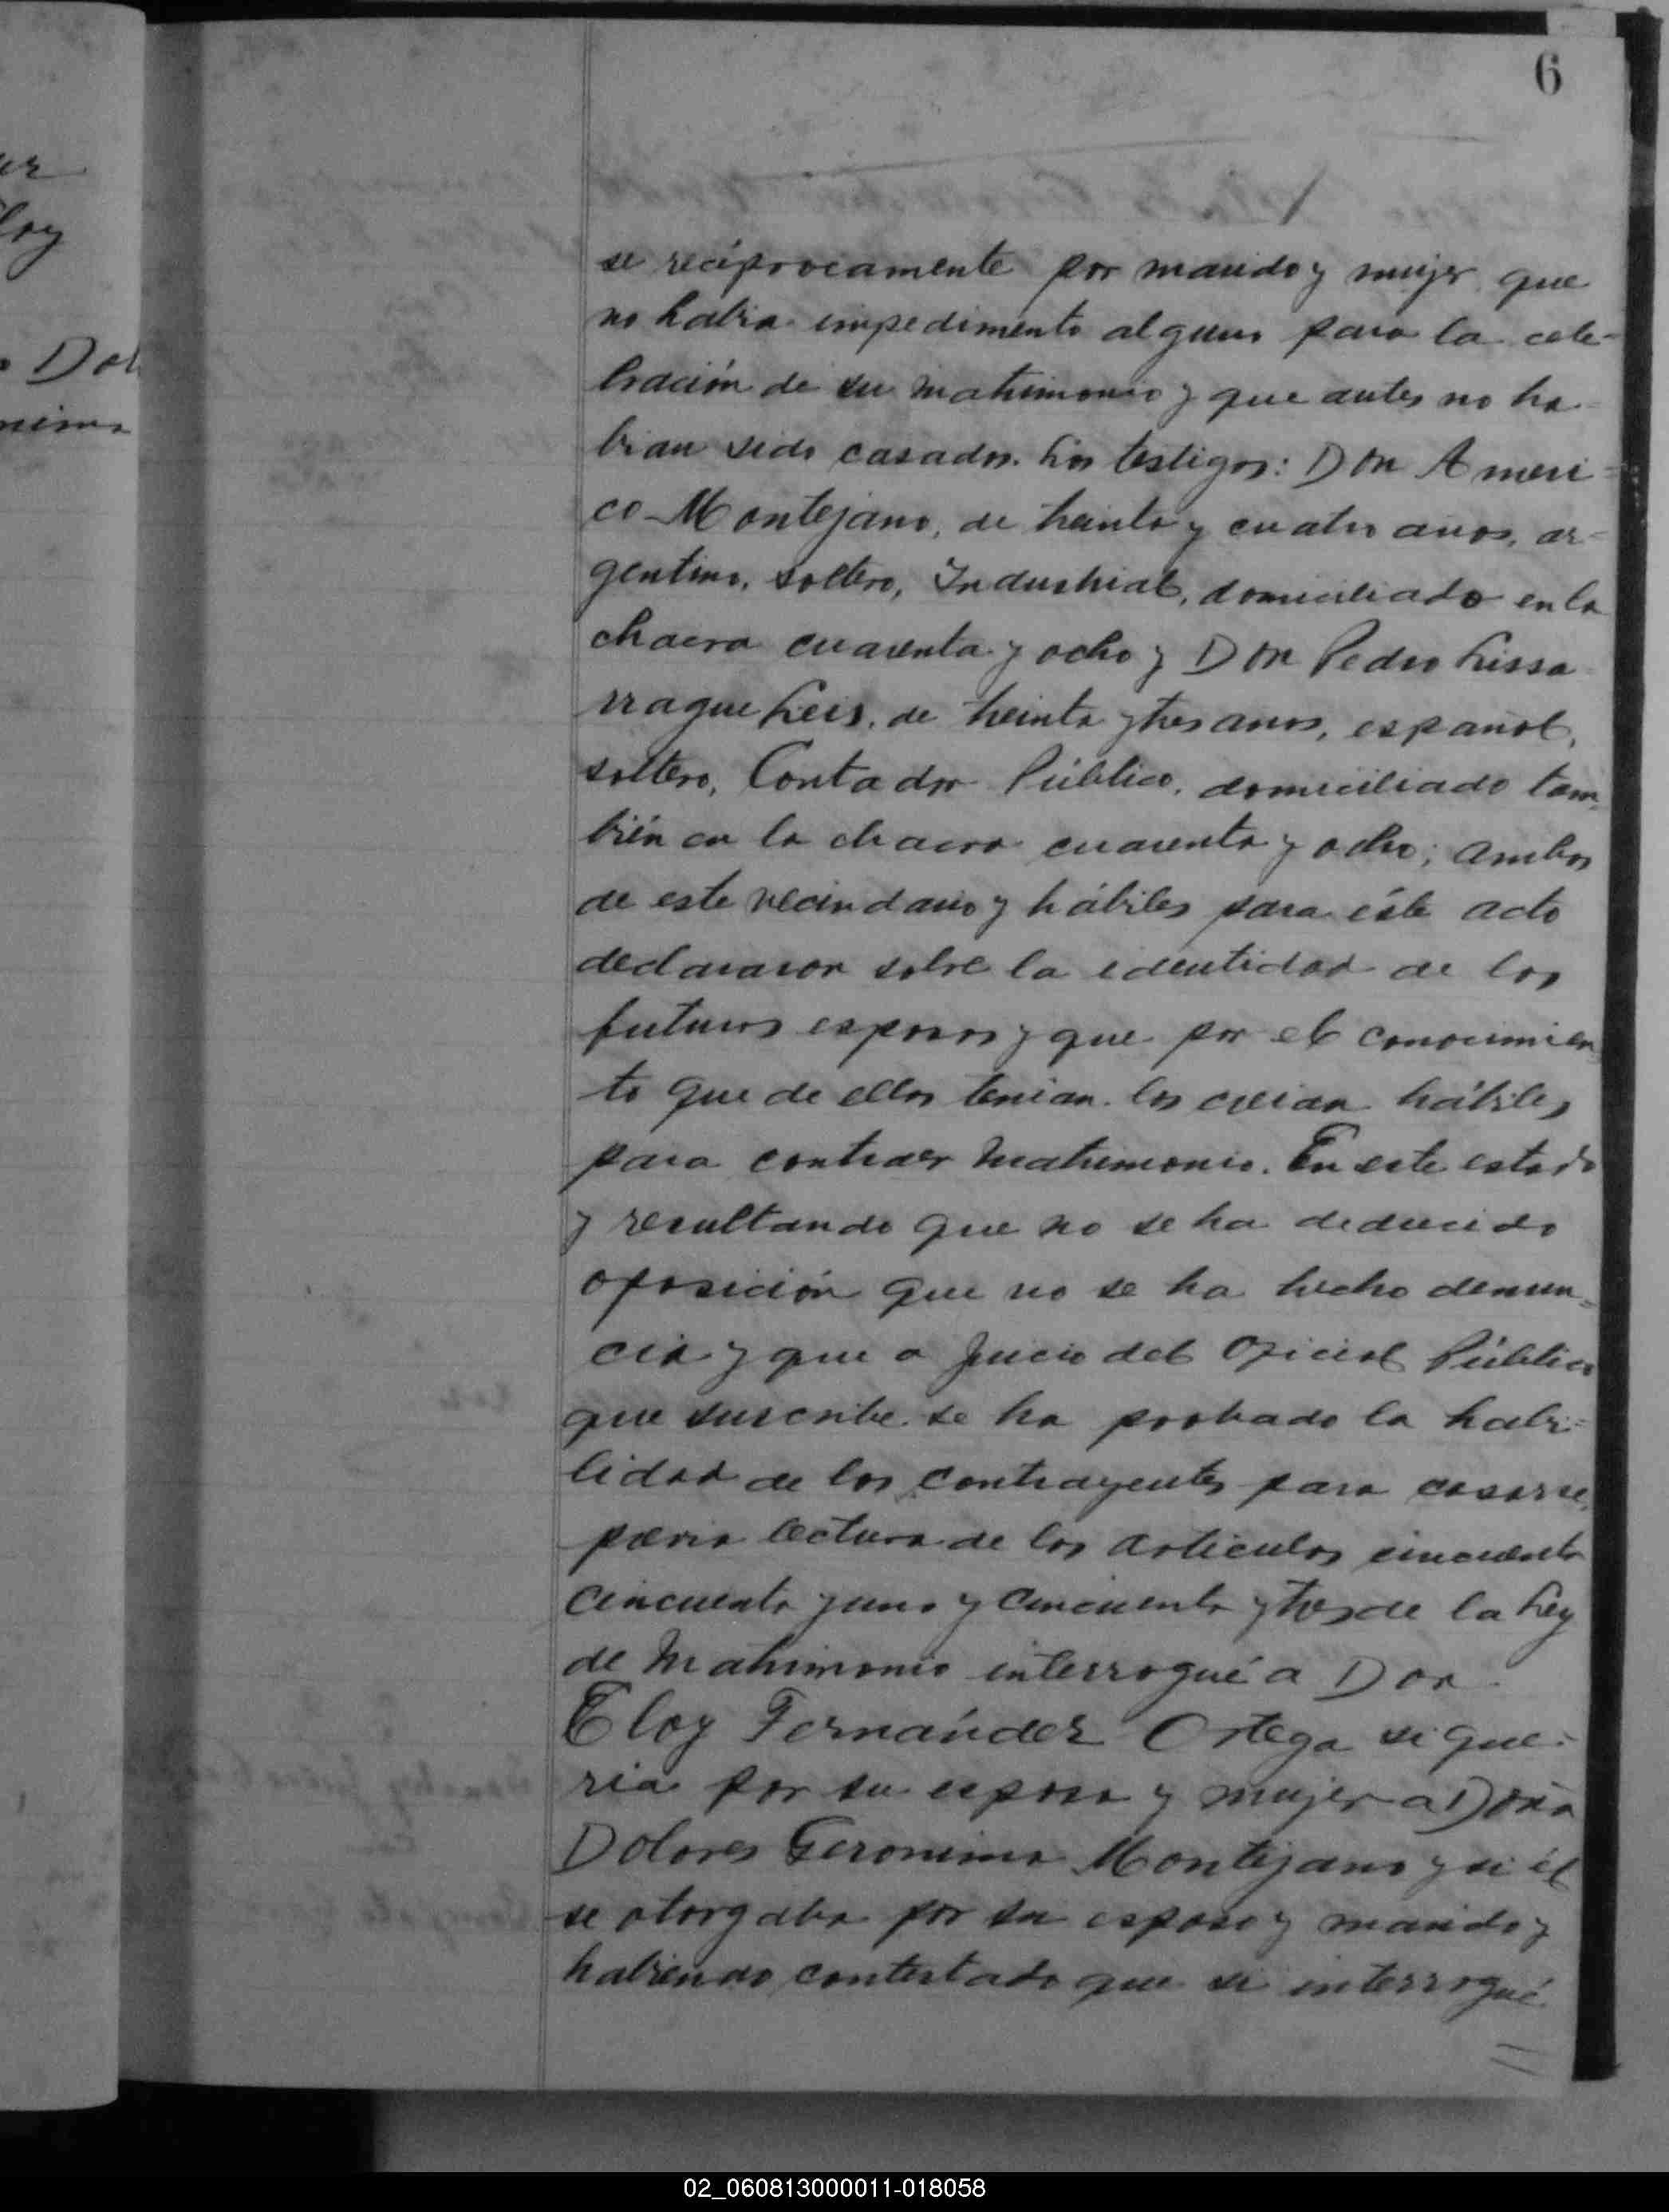 6
er
loy
Dol
nima
se recíprocamente por marido y mujer, que
no habia impedimento alguno para la cele-
bración de su matrimonio y que antes no ha-
bian sido casados. Los testigos: Don Ameri-
co Montejano, de treinta y cuatro años, ar-
gentino, soltero, Industrial, domiciliado en la
chacra cuarenta y ocho y Don Pedro Lissa
rrague Leis, de treinta y tres anos, español,
soltero, Contador Público, domiciliado tam-
bién en la chacra cuarenta y ocho; ambos
de este vecindario y hábiles para éste acto
declararon sobre la identidad de los
futuros esposos y que por el conocimien
to que de ellos tenian los creian hábiles
para contraer Matrimonio. En este estado
y resultando que no se ha deducido
oposición que no se ha hecho denun-
cia y que a Juicio del Oficial Público
que suscribe se ha probado la habi-
lidad de los contrayentes para casarse,
previa lectura de los articulos cincuenta
cincuenta y uno y cincuenta y tres de la Ley
de Matrimonio interrogué a Don
Eloy Fernández Ortega si que-
ria por su esposa y mujer a Doña
Dolores Geronima Montejano y si él
se otorgaba por su esposo y marido y
habiendo contestado que si interrogué
02_060813000011-018058